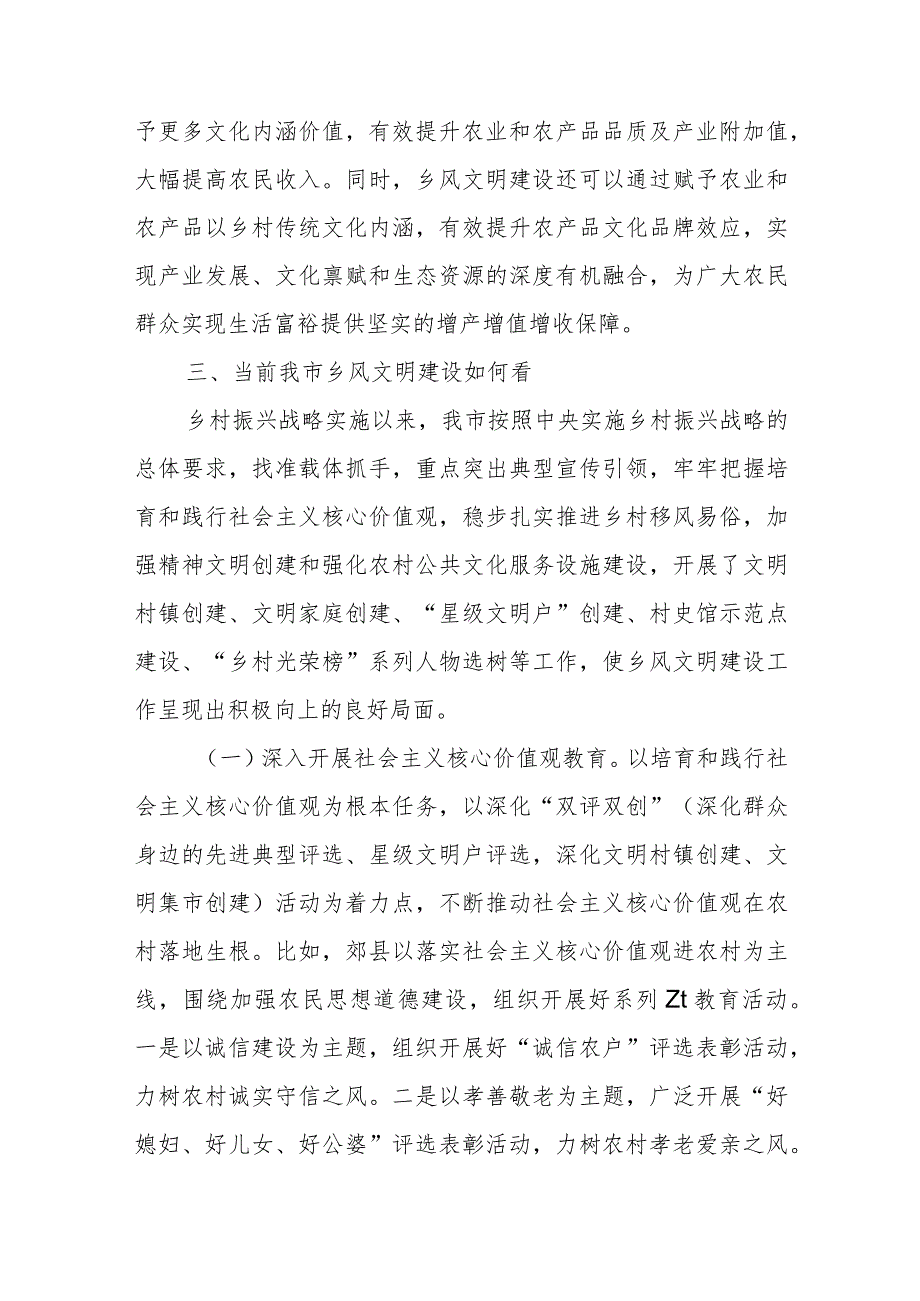 予更多文化内涵价值，有效提升农业和农产品品质及产业附加值，
大幅提高农民收入。同时，乡风文明建设还可以通过赋予农业和
农产品以乡村传统文化内涵，有效提升农产品文化品牌效应，实
现产业发展、文化禀赋和生态资源的深度有机融合，为广大农民
群众实现生活富裕提供坚实的增产增值增收保障。
三、当前我市乡风文明建设如何看
乡村振兴战略实施以来，我市按照中央实施乡村振兴战略的
总体要求，找准载体抓手，重点突出典型宣传引领，牢牢把握培
育和践行社会主义核心价值观，稳步扎实推进乡村移风易俗，加
强精神文明创建和强化农村公共文化服务设施建设，开展了文明
村镇创建、文明家庭创建、“星级文明户”创建、村史馆示范点
建设、“乡村光荣榜”系列人物选树等工作，使乡风文明建设工
作呈现出积极向上的良好局面。
（一）深入开展社会主义核心价值观教育。以培育和践行社
会主义核心价值观为根本任务，以深化“双评双创”（深化群众
身边的先进典型评选、星级文明户评选，深化文明村镇创建、文
明集市创建）活动为着力点，不断推动社会主义核心价值观在农
村落地生根。比如，郊县以落实社会主义核心价值观进农村为主
线，围绕加强农民思想道德建设，组织开展好系列 Zt 教育活动。
一是以诚信建设为主题，组织开展好“诚信农户”评选表彰活动，
力树农村诚实守信之风。二是以孝善敬老为主题，广泛开展“好
媳妇、好儿女、好公婆”评选表彰活动，力树农村孝老爱亲之风。